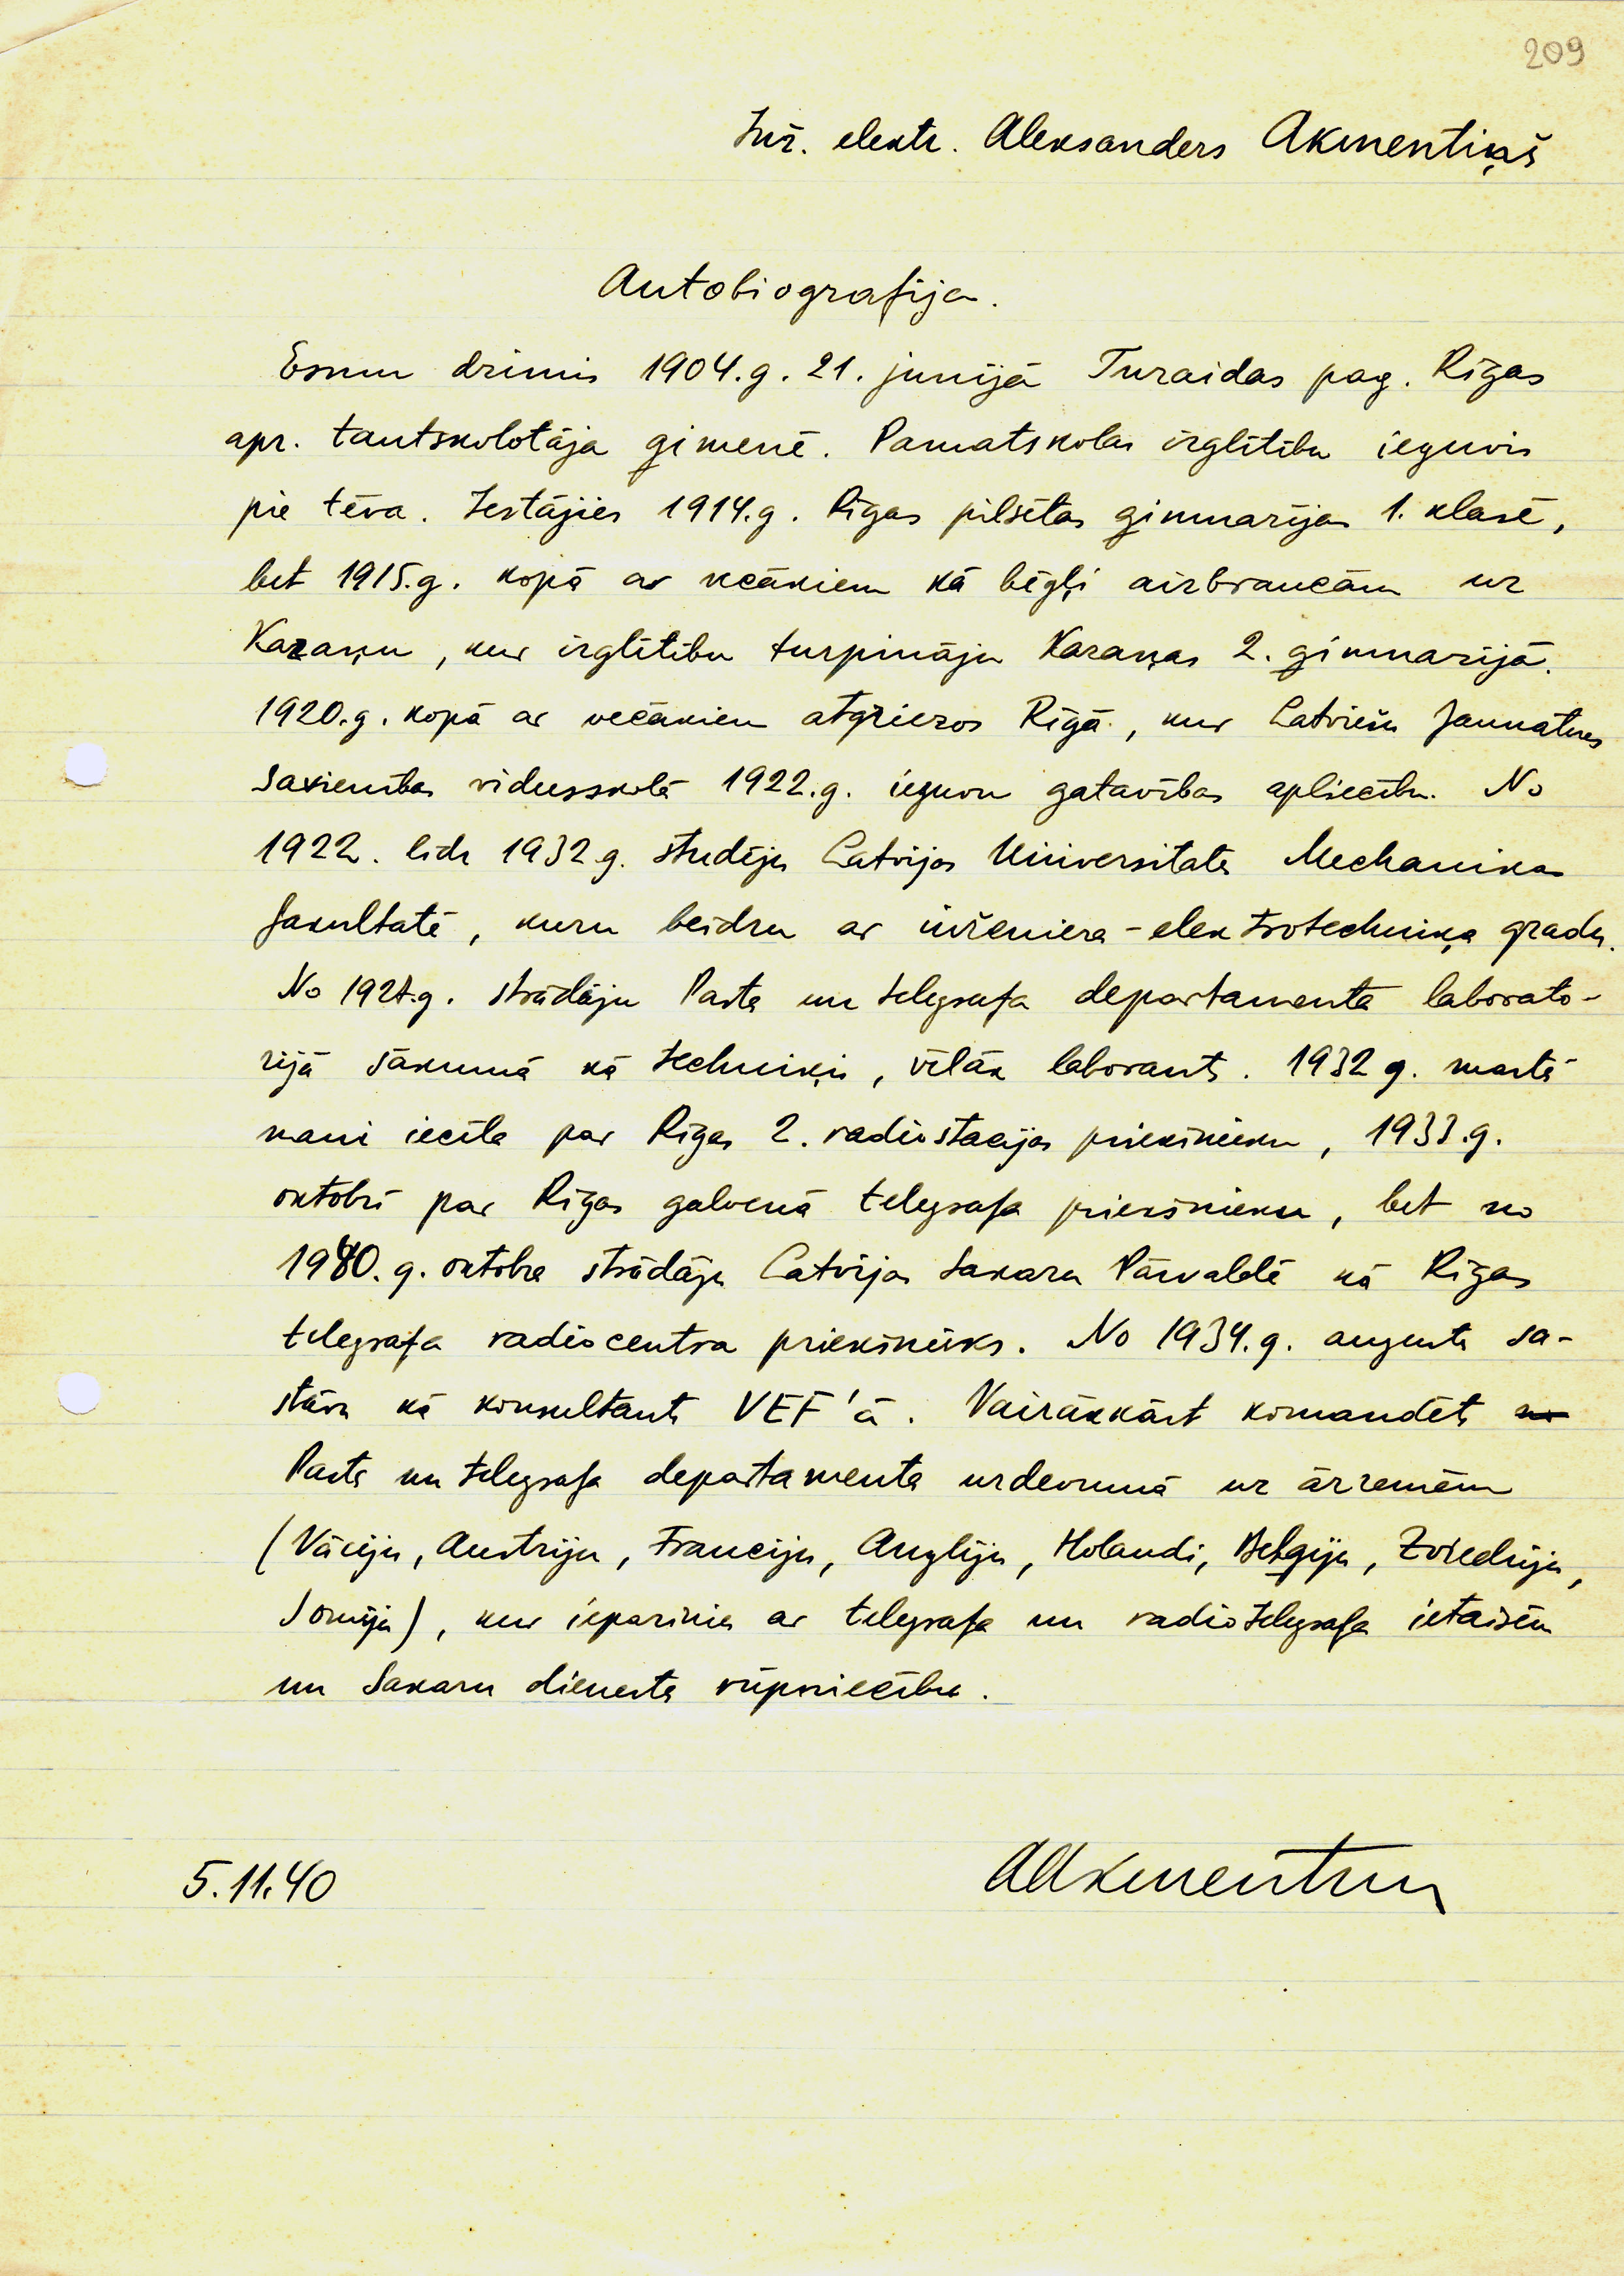 209
Inž. elektr. Aleksanders Akmentiņš
Autobiografija.
Esmu dzimis 1904.g. 21. junijā Turaidas pag. Rīgas
apr. tautskolotāja ģimenē. Pamatskolas izglītību ieguvis
pie tēva. Iestājies 1914.g. Rīgas pilsētas ģimnazijas 1. klasē,
bet 1915.g. kopā ar vecākiem kā bēgļi aizbraucām uz
Kazaņu, kur izglītību turpināju Kazaņas 2. ģimnazijā.
1920.g. kopā ar vecākiem atgriezos Rīgā, kur Latviešu Jaunatnes
Savienības vidusskolā 1922.g. ieguvu gatavības apliecību. No
1922. līdz 1932.g. studēju Latvijas Universitatē Mechanikas
fakultatē, kuru beidzu ar inženiera-elektrotechniķa gradu.
No 192 .g. strādāju Pasta un telegrafa departamenta laborato-
rijā sākumā kā techniķis, vēlāk laborants. 1932 g. martā
mani iecēla par Rīgas 2. radiostacijas priekšnieku, 1933.g.
oktobrī par Rīgas galvenā telegrafa priekšnieku, bet no
1940.g. oktobra strādāju Latvijas Sakaru Pārvaldē kā Rīgas
telegrafa radiocentra priekšnieks. No 1934.g. augusta sa-
stāvu kā konsultants VEF'ā. Vairākkārt komandēts
Pasta un telegrafa departamenta uzdevumā uz ārzemēm
(Vāciju, Austriju, Franciju, Angliju, Holandi, Beļģiju, Zviedriju,
Somiju), kur iepazinies ar telegrafa un radiotelegrafa ietaisēm
un Sakaru dienesta rūpniecību.
5.11.40